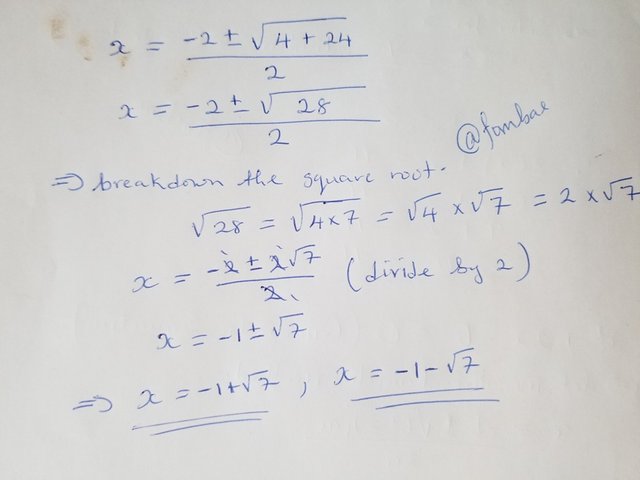 x = -2 ± √4 + 24 / 2
x = -2 ± √28 / 2
@fombae
=> breakdown the square root.
√28 = √4×7 = √4 × √7 = 2 × √7
x = -2 ± 2√7 / 2 (divide by 2)
x = -1 ± √7
=> x = -1+√7 , x = -1-√7